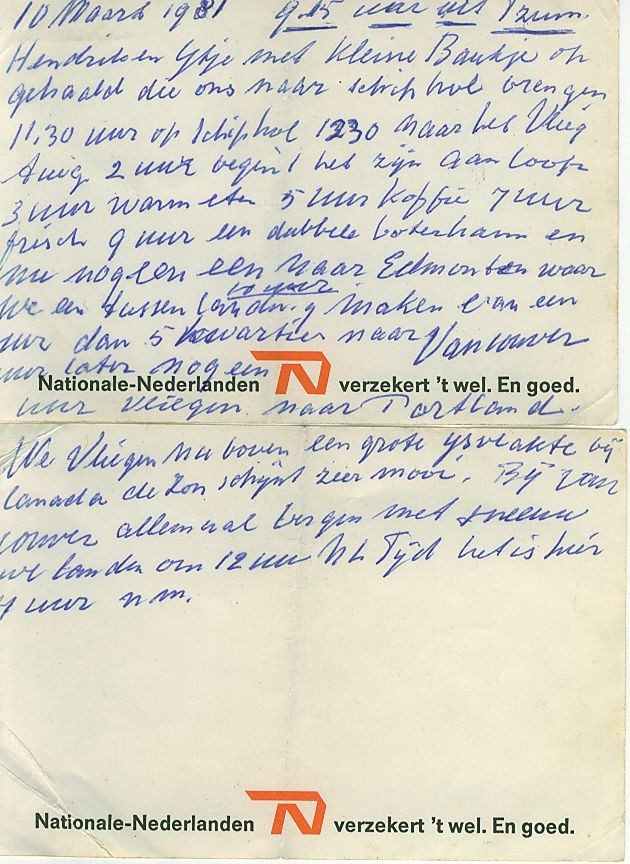 10 Maart 1981 9.15 uur uit Tzum.
Hendrik en Ytje met Kleine Baukje op
gehaald die ons naar schiphol brengen
11.30 uur op Schiphol 1230 naar het Vlieg
tuig 2 uur begint het zijn aanloop
3 uur warm eten 5 uur Koffie 7 uur
frisch 9 uur een dubbele boterham en
nu nog een een naar Edmonton waar
10 uur
We een tussen landing maken van een
uur dan 5 kwartier naar Vancouver
uur later nog een
Nationale-Nederlanden verzekert 't wel. En goed.
uur vliegen naar Portland.
We Vliegen nu boven een grote ysvlakte bij
Canada de Zon schijnt zeer mooi. Bij Van
couver allemaal bergen met sneeuw
we landen om 12 uur NL Tijd het is hier
4 uur n.m.
Nationale-Nederlanden verzekert 't wel. En goed.